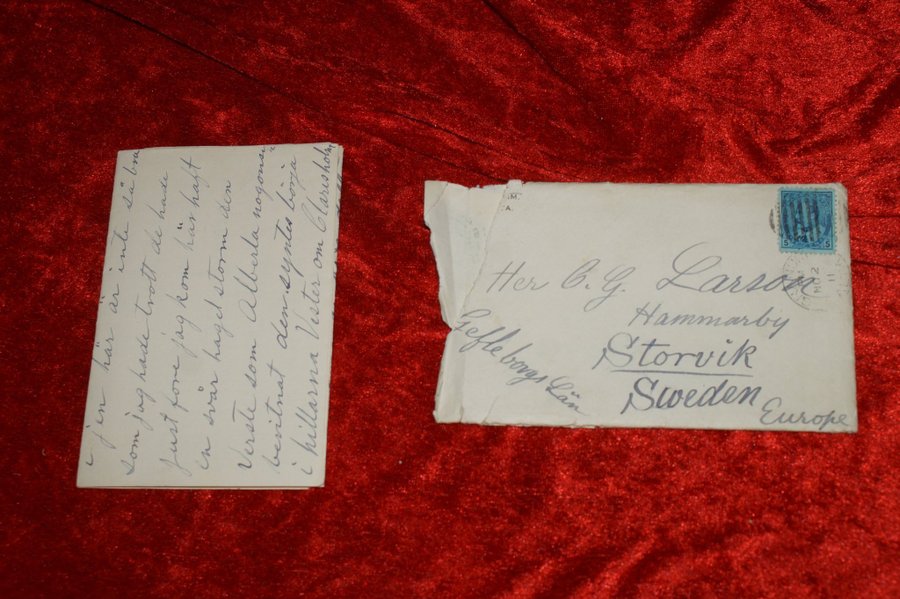 i jen här är inte så bra
som jag hade trott de hade
just före jag kom här haft
en svår hagel storm den
Verste som Alberta nogonsi
besitnat den syntes börja
i hillarna Vester om Claresholm
M.
A.
5 5
2
11
Her C. G. Larson
Hammarby
Storvik
Sweden
Europe
Gefleborgs Län